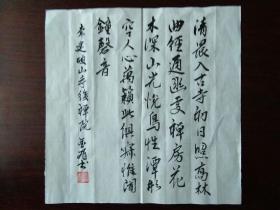 清晨入古寺初日照高林
曲徑通幽處禪房花
木深山光悅鳥性潭影
空人心萬籟此俱寂惟聞
鐘磬音
常建破山寺後禪院